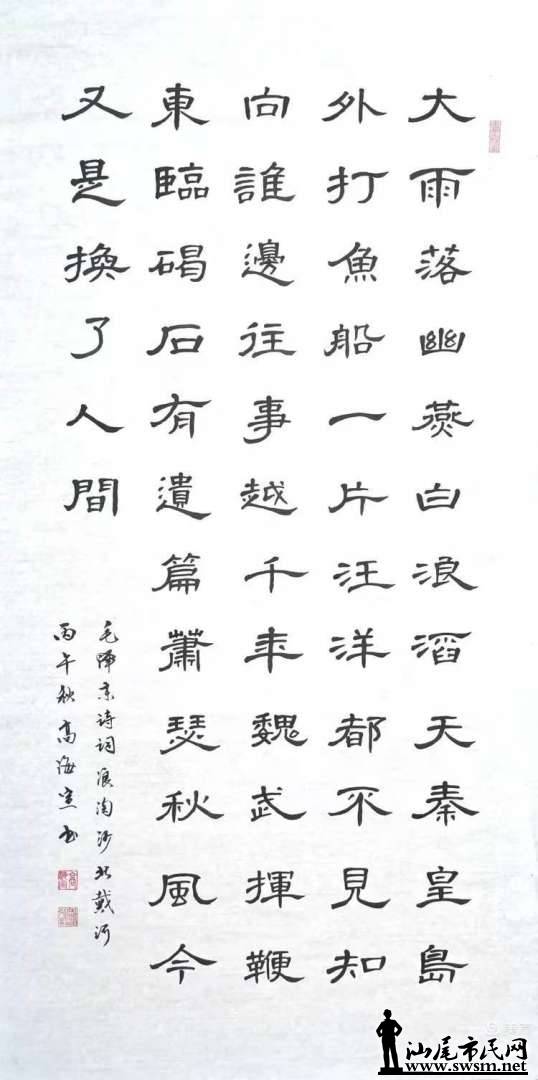 大雨落幽燕白浪滔天秦皇島
外打魚船一片汪洋都不見知
向誰邊往事越千年魏武揮鞭
東臨碣石有遺篇蕭瑟秋風今
又是換了人間
毛澤东诗词浪淘沙北戴河
丙午秋高海宣书
汕尾市民网
www.swsm.net